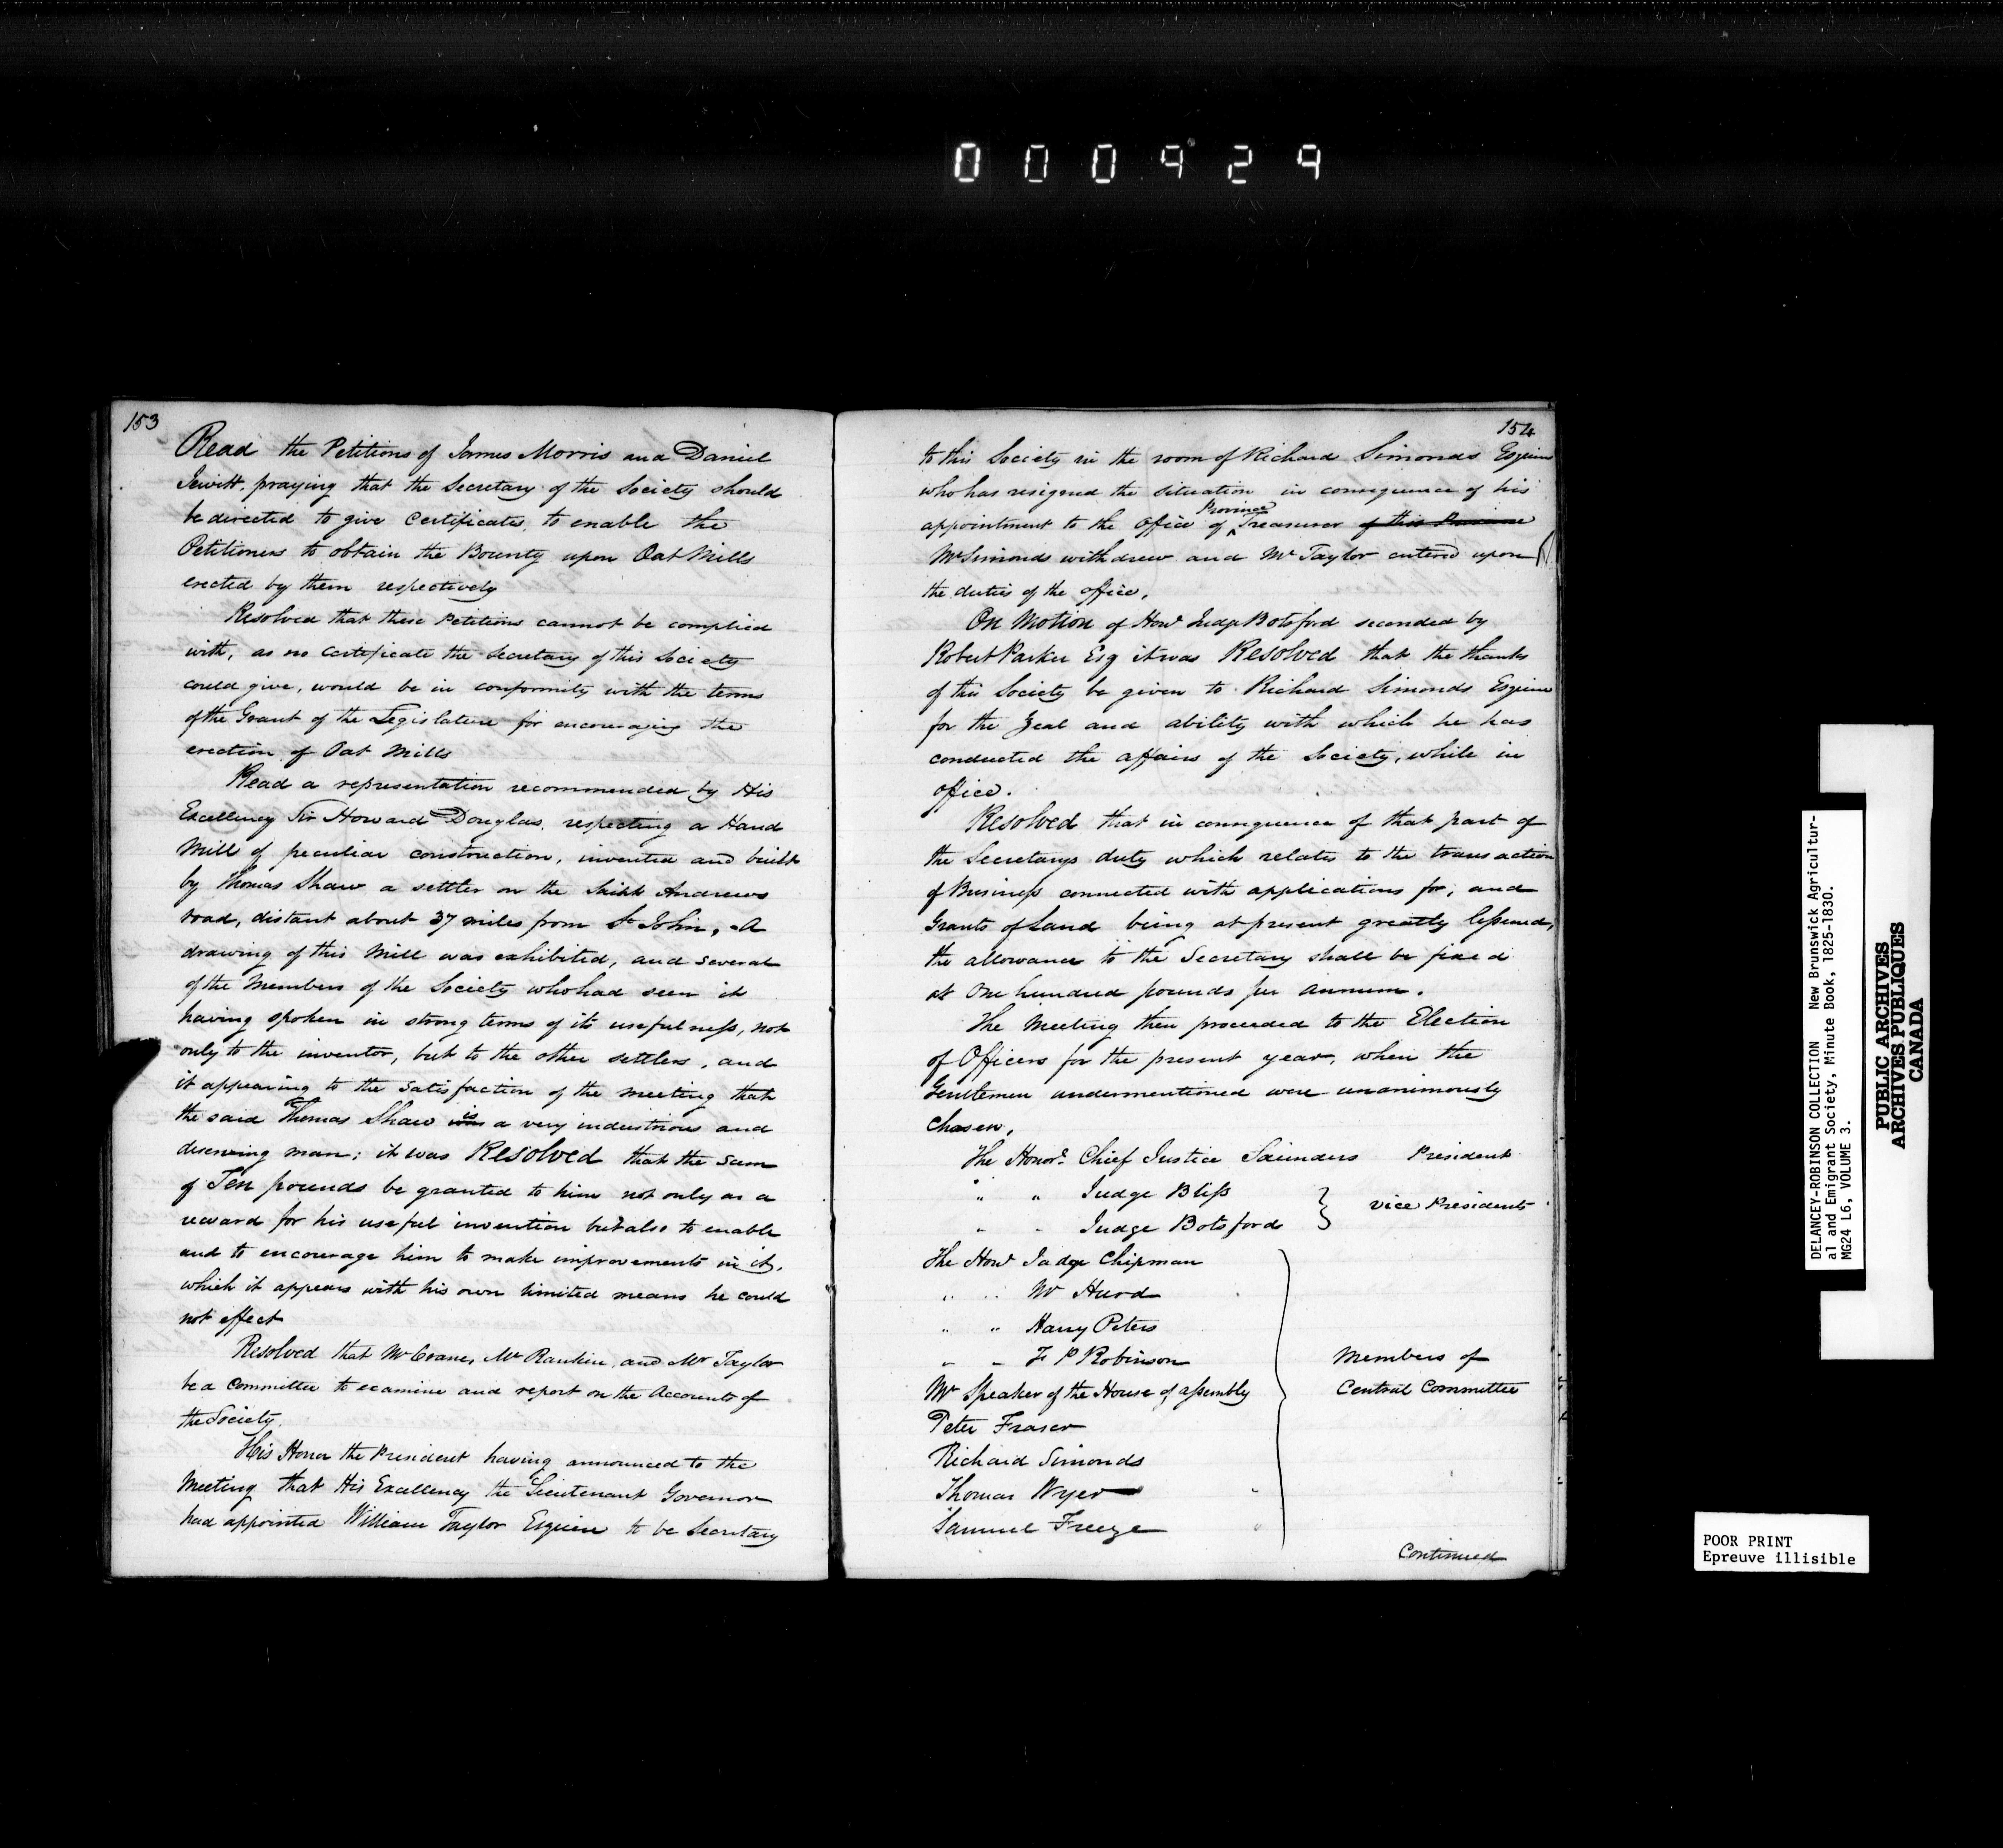 000929
153
Read the Petitions of James Morris and Daniel
Jewitt, praying that the Secretary of the Society should
be directed to give Certificates, to enable the
Petitioners to obtain the Bounty upon Oat Mills
erected by them respectively
Resolved that these Petitions cannot be complied
with, as no Certificate the Secretary of this Society
could give, would be in conformity with the terms
of the Grant of the Legislature for encouraging the
erection of Oat Mills
Read a representation recommended by His
Excellency Sir Howard Douglas, respecting a Hand
Mill of peculiar construction, invented and built
by Thomas Shaw a settler on the Saint Andrews
road, distant about 37 miles from St John, A
drawing of this Mill was exhibited, and several
of the Members of the Society who had seen it
having spoken in strong terms of its usefulness, not
only to the inventor, but to the other settlers, and
it appearing to the satisfaction of the meeting that
the said Thomas Shaw is a very industrious and
deserving man; it was Resolved that the sum
of Ten pounds be granted to him not only as a
reward for his useful invention but also to enable
and to encourage him to make improvements in it,
which it appears with his own limited means he could
not effect
Resolved that Mr Crane, Mr Rankin, and Mr Taylor
be a Committee to examine and report on the Accounts of
the Society.
His Honor the President having announced to the
Meeting that His Excellency the Lieutenant Governor
had appointed William Taylor Esquire to be Secretary
154
to this Society in the room of Richard Simonds Esquire
who has resigned the situation in consequence of his
appointment to the office of Province Treasurer of this Province
Mr Simonds withdrew and Mr Taylor entered upon
the duties of the office.
On Motion of Honl Judge Botsford seconded by
Robert Parker Esq it was Resolved that the thanks
of this Society be given to Richard Simonds Esquire
for the Zeal and ability with which he has
conducted the affairs of the Society, while in
office.
Resolved that in consequence of that part of
the Secretarys duty which relates to the transaction
of Business connected with applications for, and
Grants of Land being at present greatly lessened,
the allowance to the Secretary shall be fixed
at One hundred pounds per annum.
The Meeting then proceeded to the Election
of Officers for the present year, when the
Gentlemen undermentioned were unanimously
Chosen,
The Honorl Chief Justice Saunders President
" " Judge Bliss
" " Judge Botsford } Vice Presidents
The Honl Judge Chipman
" " Mr Hurd
" " Harry Peters
" " F P Robinson
Mr Speaker of the House of Assembly
Peter Fraser
Richard Simonds
Thomas Wyer
Samuel Freeze
Members of
Central Committee
Continued
DELANCEY-ROBINSON COLLECTION New Brunswick Agricultur-
al and Emigrant Society, Minute Book, 1825-1830.
MG24 L6, VOLUME 3.
PUBLIC ARCHIVES
ARCHIVES PUBLIQUES
CANADA
POOR PRINT
Epreuve illisible